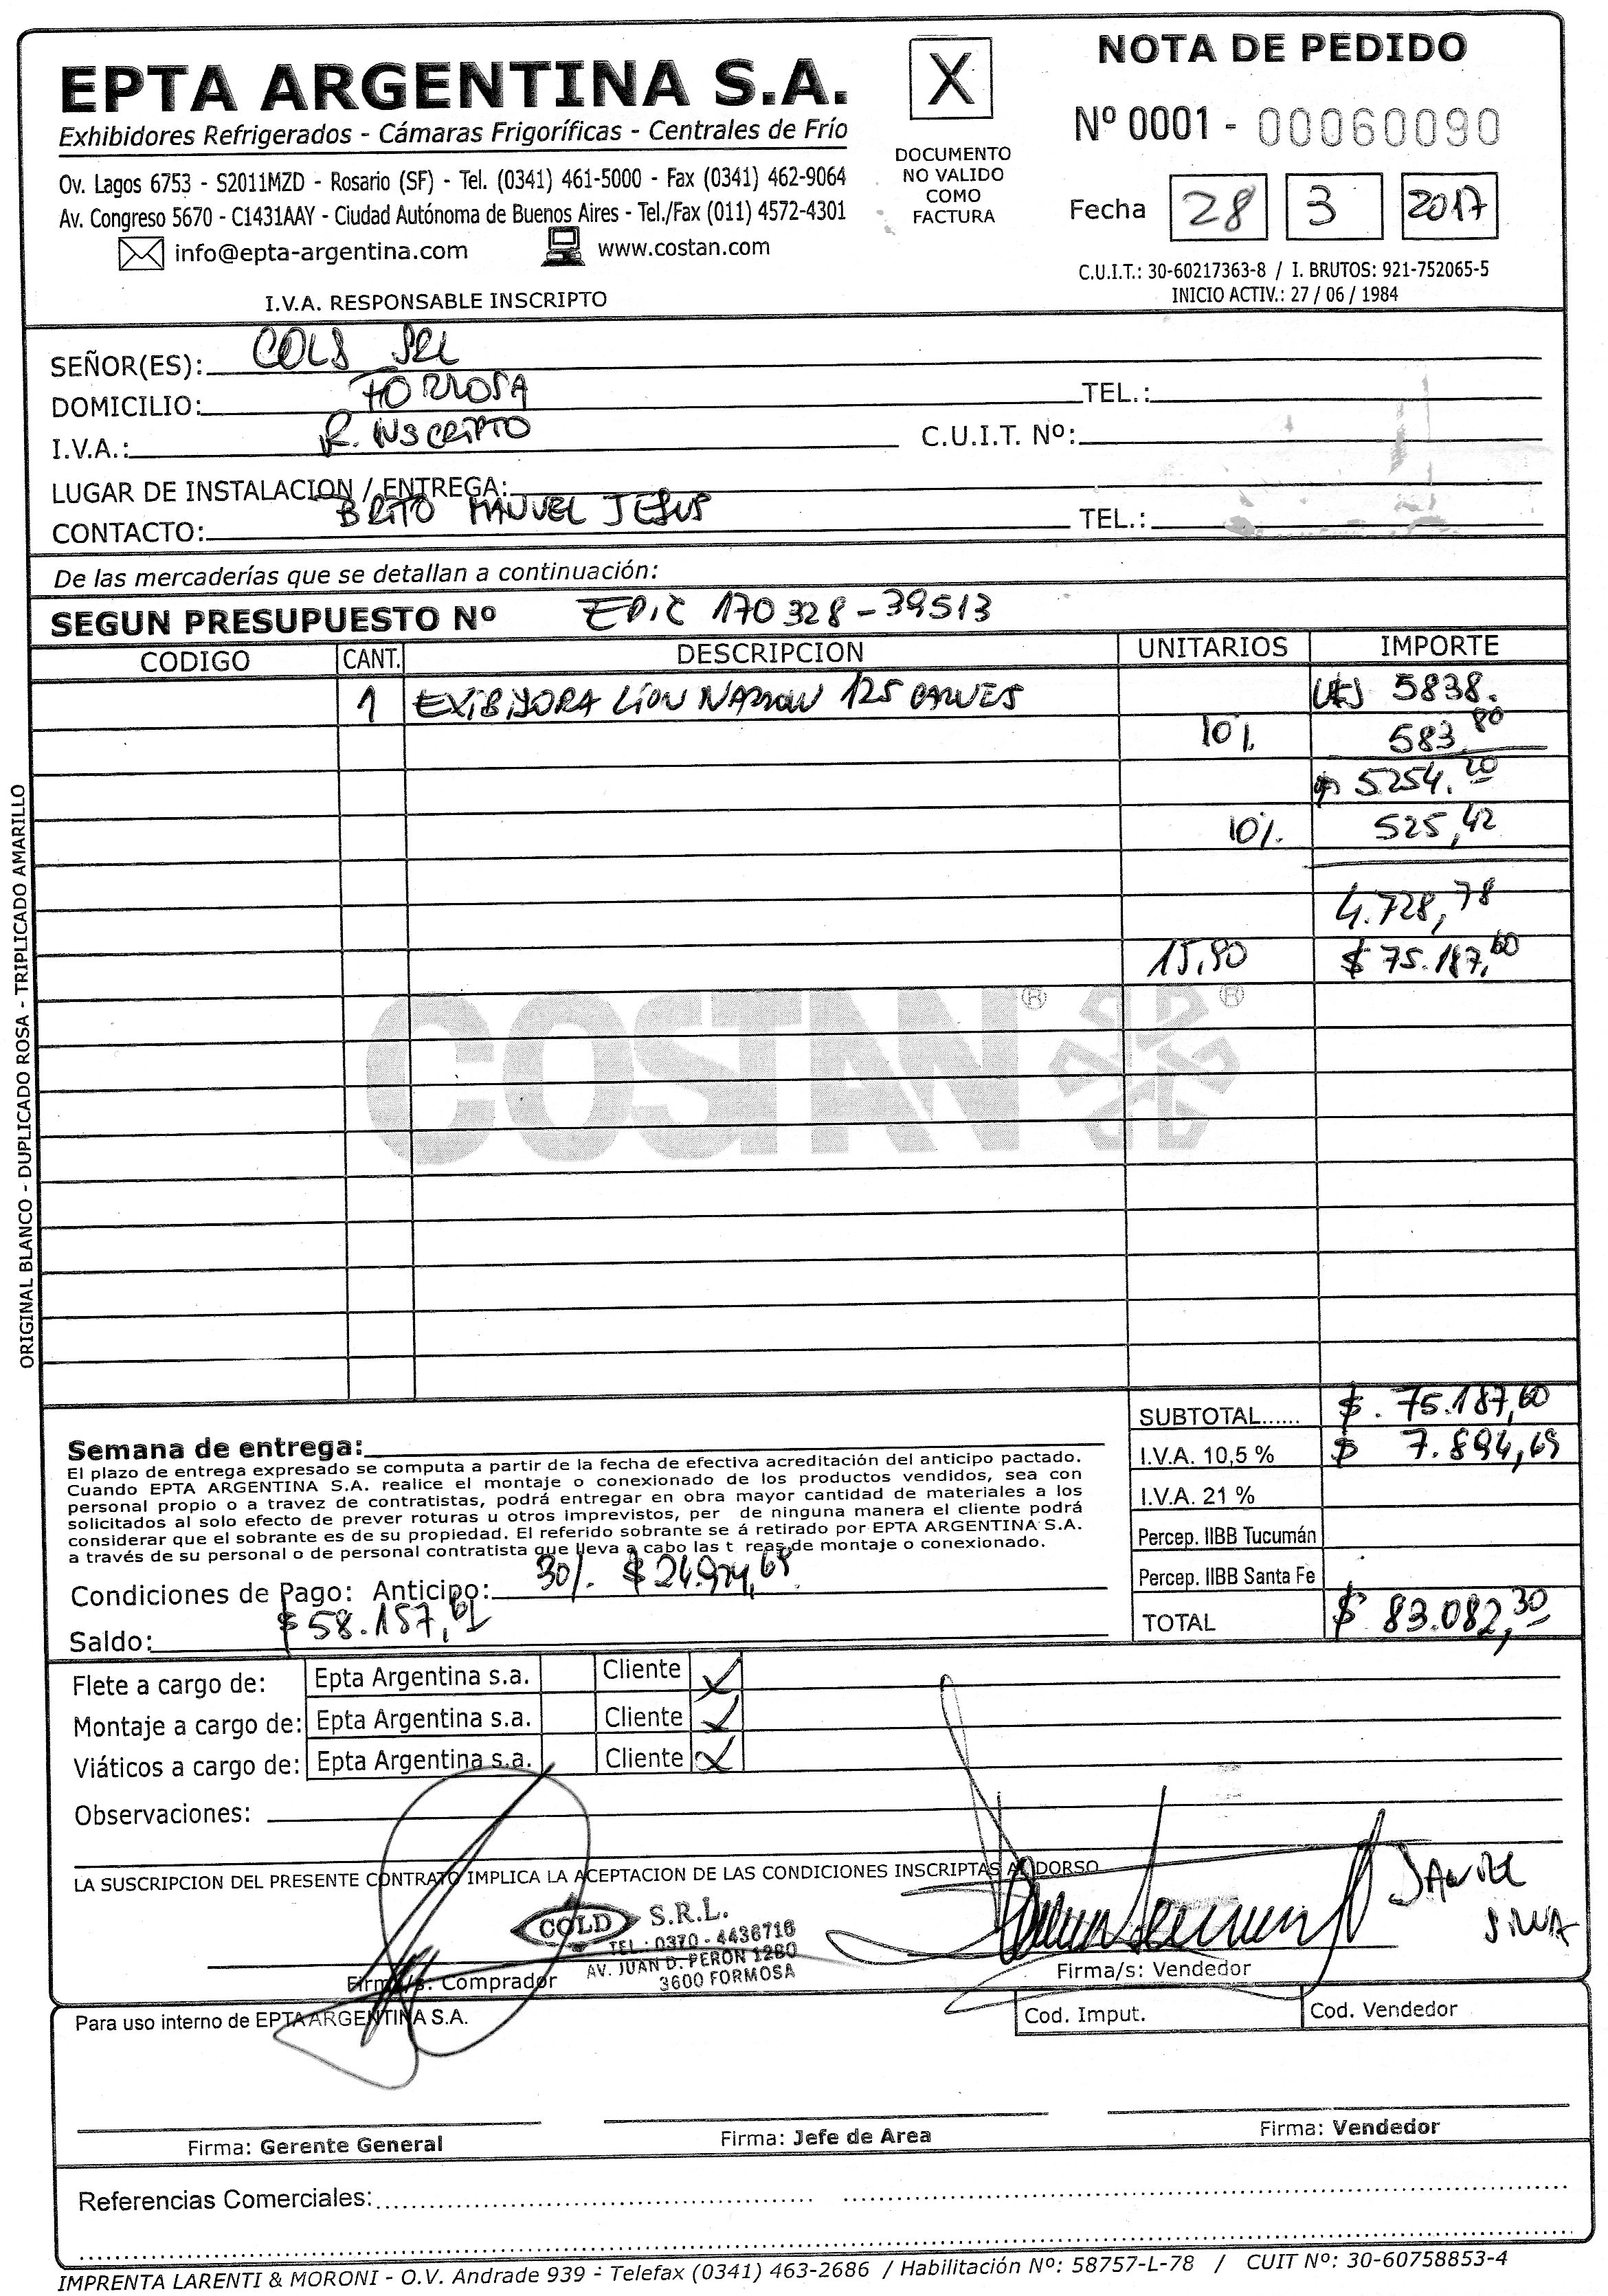 EPTA ARGENTINA S.A.
Exhibidores Refrigerados - Cámaras Frigoríficas - Centrales de Frío
Ov. Lagos 6753 - S2011MZD - Rosario (SF) - Tel. (0341) 461-5000 - Fax (0341) 462-9064
Av. Congreso 5670 - C1431AAY - Ciudad Autónoma de Buenos Aires - Tel./Fax (011) 4572-4301
info@epta-argentina.com www.costan.com
I.V.A. RESPONSABLE INSCRIPTO
X
DOCUMENTO
NO VALIDO
COMO
FACTURA
NOTA DE PEDIDO
Nº 0001 - 00060090
Fecha 28 3 2017
C.U.I.T.: 30-60217363-8 / I. BRUTOS: 921-752065-5
INICIO ACTIV.: 27 / 06 / 1984
SEÑOR(ES): COLD SRL
DOMICILIO: FORMOSA TEL.:
I.V.A.: R. INSCRIPTO C.U.I.T. Nº:
LUGAR DE INSTALACION / ENTREGA:
CONTACTO: BRITO MANUEL JESUS TEL.:
De las mercaderías que se detallan a continuación:
SEGUN PRESUPUESTO Nº EPIC 170328-39513
CODIGO CANT. DESCRIPCION UNITARIOS IMPORTE
1 EXIBIDORA LION NARROW 125 CARNES U$S 5838.
10% 583,80
5254.20
10%. 525,42
4.728,78
15,90 $ 75.187,60
COSTAN ® ®
ORIGINAL BLANCO - DUPLICADO ROSA - TRIPLICADO AMARILLO
SUBTOTAL...... $. 75.187,60
I.V.A. 10,5 % $ 7.894,69
I.V.A. 21 %
Percep. IIBB Tucumán
Percep. IIBB Santa Fe
TOTAL $ 83.082,30
Semana de entrega:
El plazo de entrega expresado se computa a partir de la fecha de efectiva acreditación del anticipo pactado.
Cuando EPTA ARGENTINA S.A. realice el montaje o conexionado de los productos vendidos, sea con
personal propio o a travez de contratistas, podrá entregar en obra mayor cantidad de materiales a los
solicitados al solo efecto de prever roturas u otros imprevistos, per de ninguna manera el cliente podrá
considerar que el sobrante es de su propiedad. El referido sobrante se á retirado por EPTA ARGENTINA S.A.
a través de su personal o de personal contratista que lleva a cabo las t reas de montaje o conexionado.
Condiciones de Pago: Anticipo: 30%. $ 24.924,69
Saldo: $ 58.157,61
Flete a cargo de: Epta Argentina s.a. Cliente X
Montaje a cargo de: Epta Argentina s.a. Cliente X
Viáticos a cargo de: Epta Argentina s.a. Cliente X
Observaciones:
LA SUSCRIPCION DEL PRESENTE CONTRATO IMPLICA LA ACEPTACION DE LAS CONDICIONES INSCRIPTAS AL DORSO
COLD S.R.L.
TEL.: 0370 - 4436716
AV. JUAN D. PERON 1280
3600 FORMOSA
SILVA
Firma/s: Comprador
Firma/s: Vendedor
Para uso interno de EPTA ARGENTINA S.A.
Cod. Imput. Cod. Vendedor
Firma: Gerente General Firma: Jefe de Area Firma: Vendedor
Referencias Comerciales:
IMPRENTA LARENTI & MORONI - O.V. Andrade 939 - Telefax (0341) 463-2686 / Habilitación Nº: 58757-L-78 / CUIT Nº: 30-60758853-4